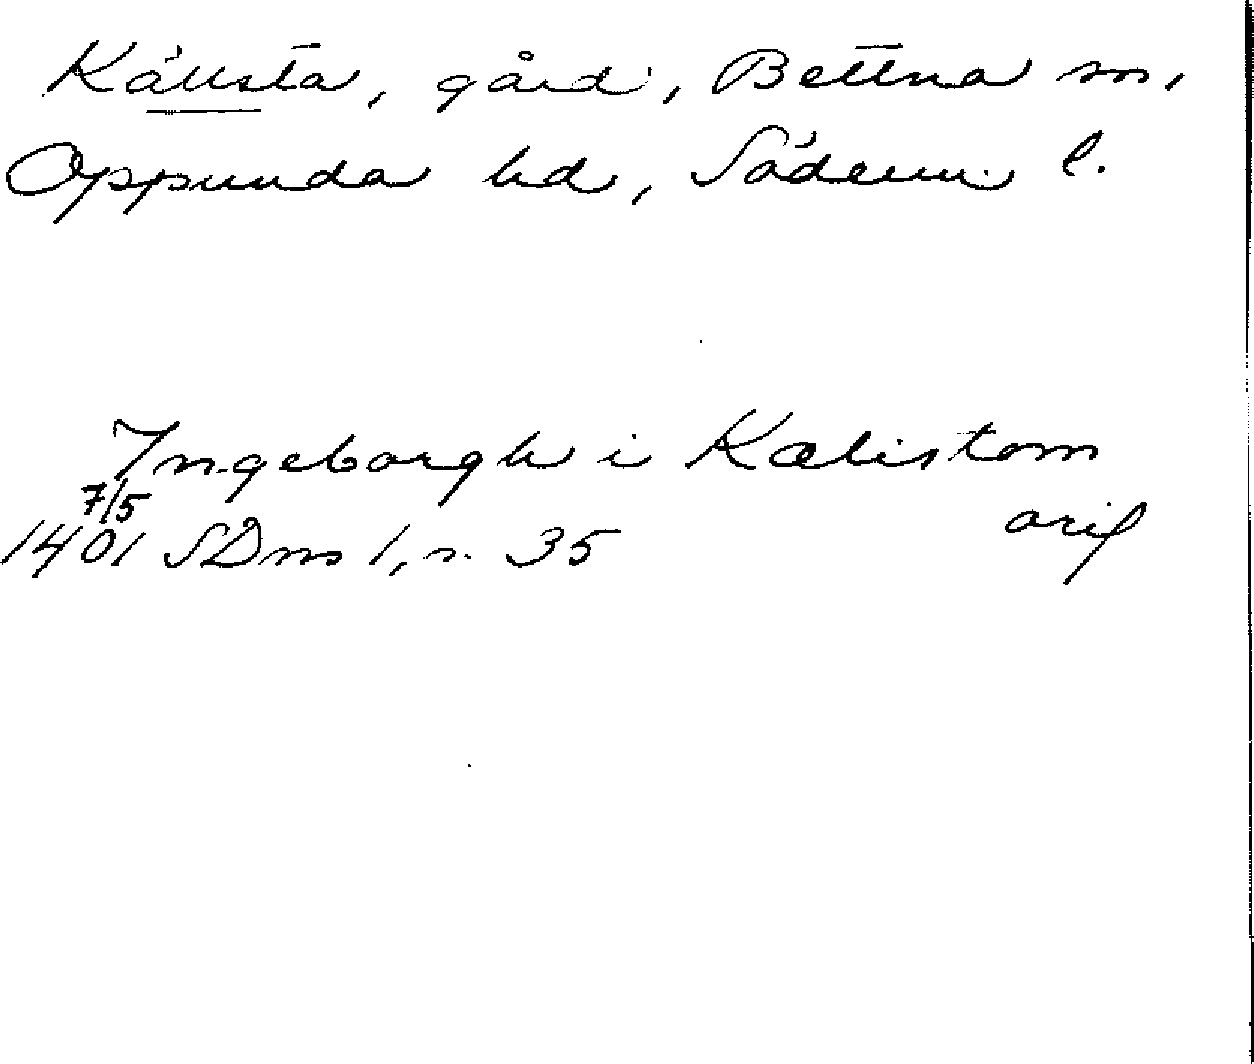 Källsta, gård, Bettna sn,
Oppunda hd, Söderm. l.
Ingeborgh i Kælistom
7/5
1401 SDns 1, s. 35 orig